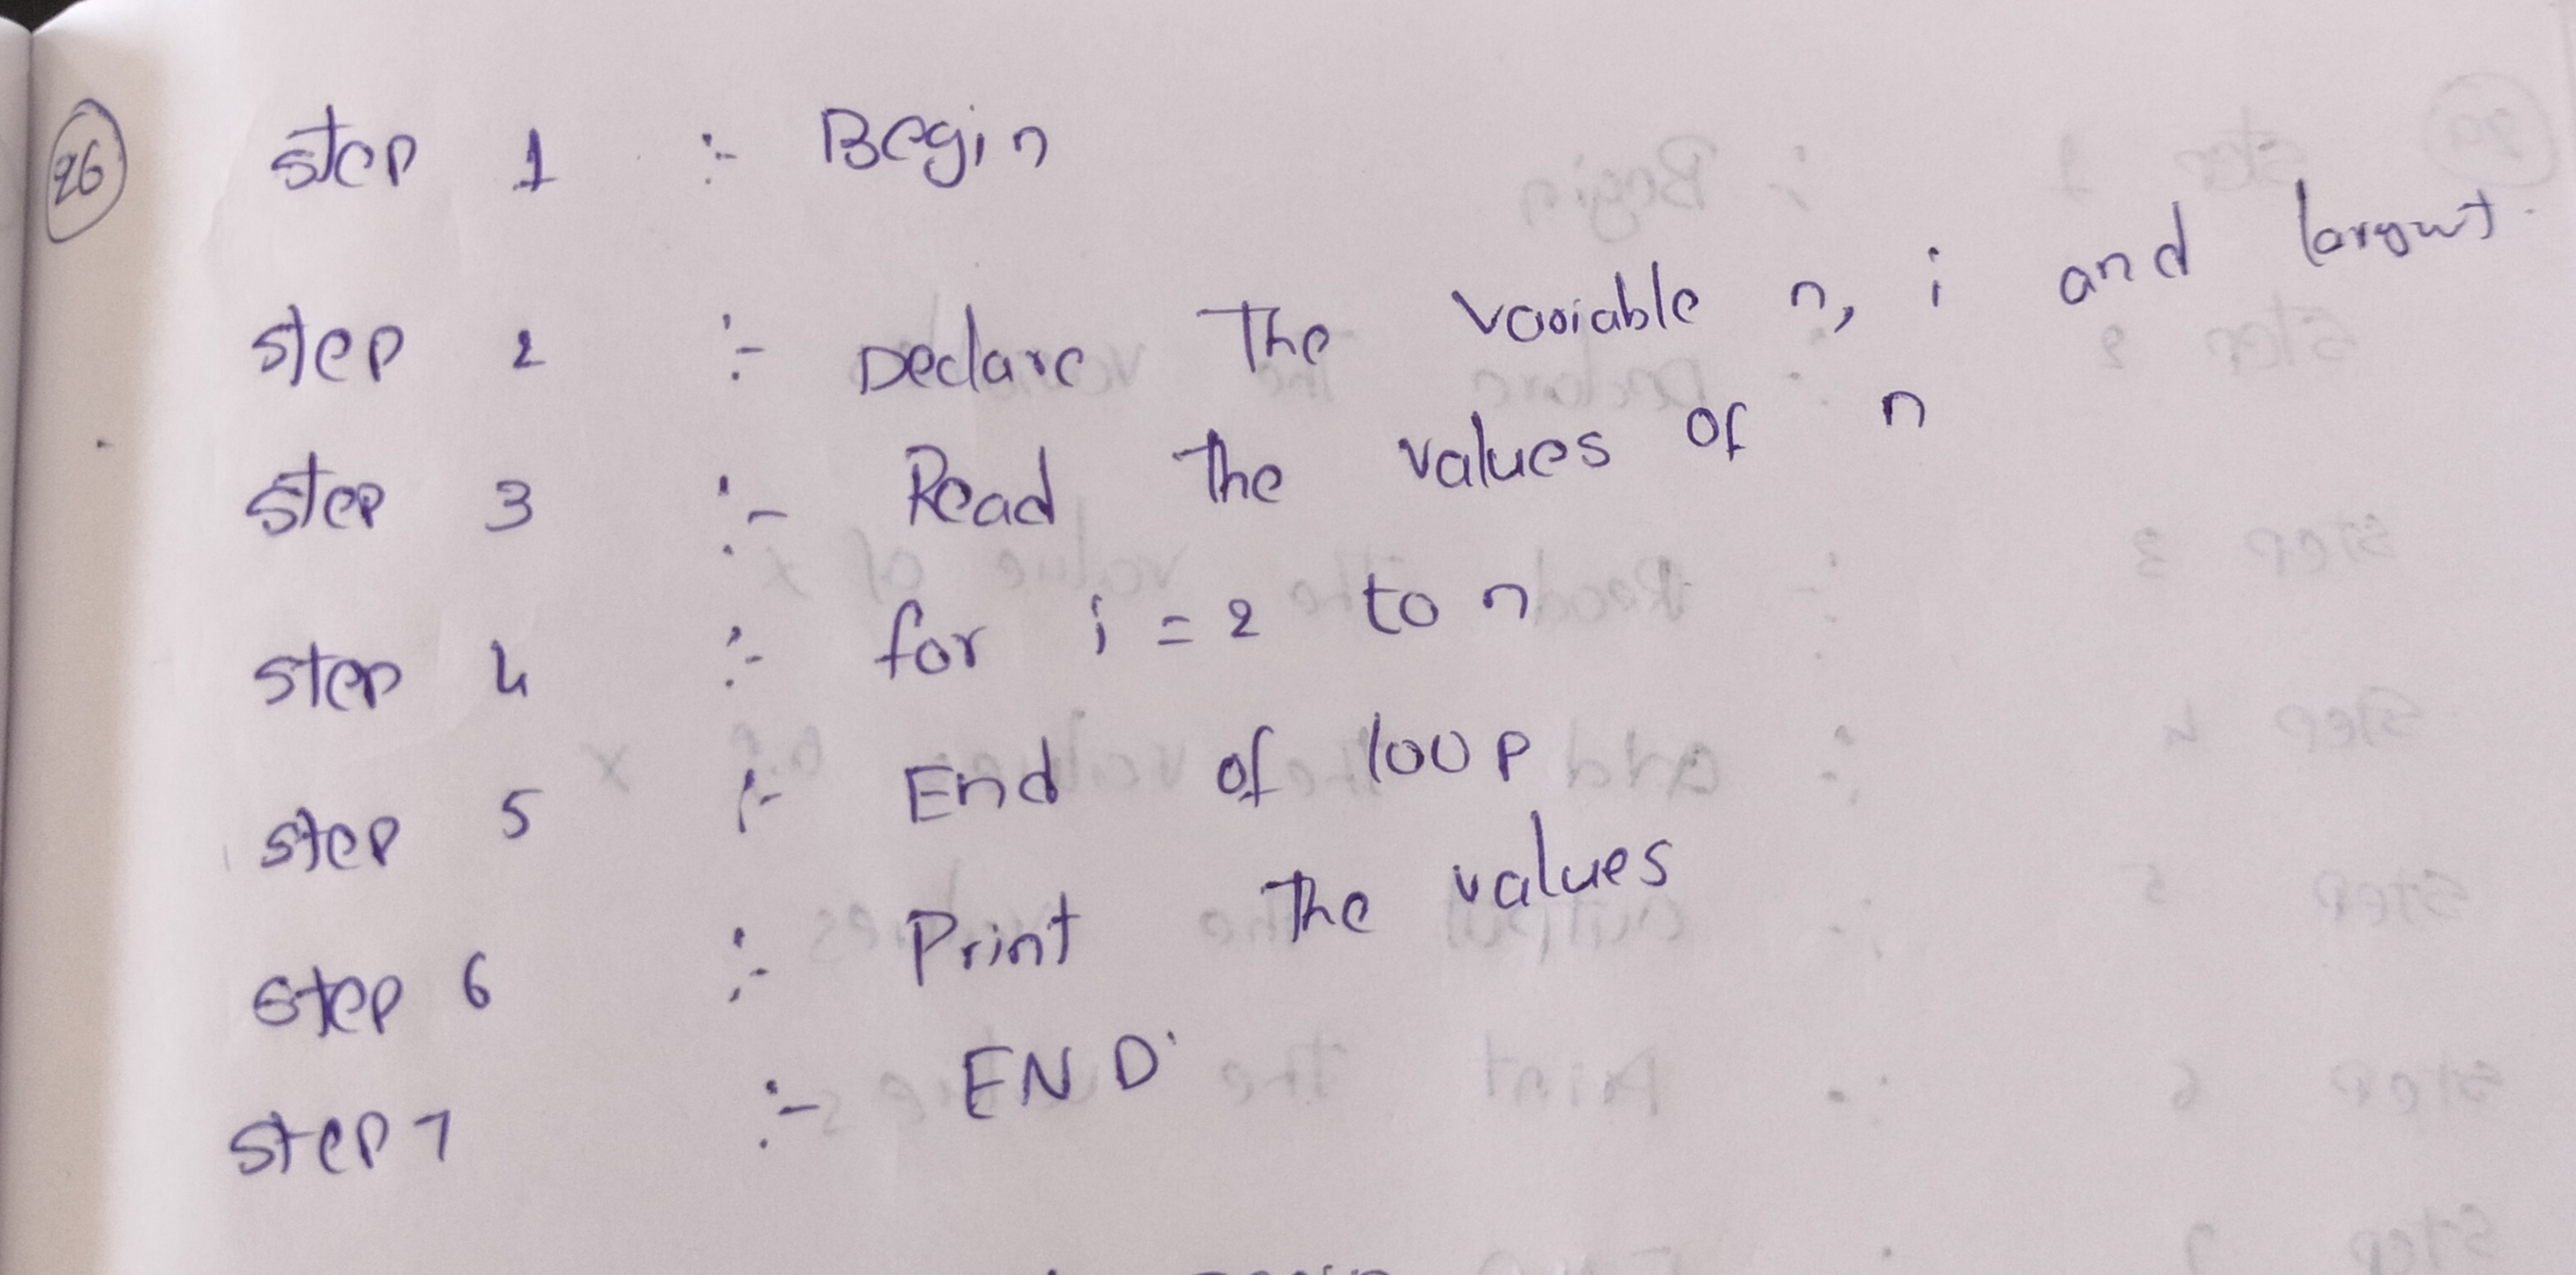 26 Step 1 :- Begin
Step 2 :- Declare The variable n, i and largest.
Step 3 :- Read The values of n
Step 4 :- for i = 2 to n
Step 5 :- End of loop
Step 6 :- Print The values
Step 7 :- END.